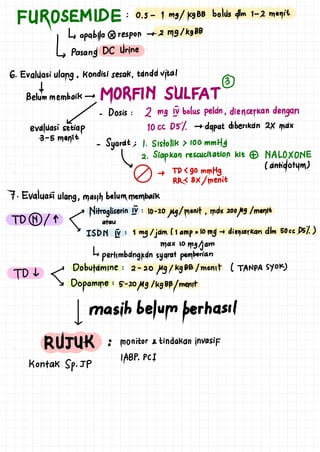 FUROSEMIDE : 0.5 - 1 mg/kgBB bolus dlm 1-2 menit
↳ apabila ⊗ respon → 2 mg/kgBB
↳ Pasang DC Urine
6. Evaluasi ulang, kondisi sesak, tanda vital
↓
Belum membaik → MORFIN SULFAT ③
evaluasi setiap
3-5 menit
- Dosis : 2 mg IV bolus pelan, diencerkan dengan
10 cc D5% → dapat diberikan 2X max
- Syarat : 1. Sistolik > 100 mmHg
2. Siapkan rescucitation kit ⊕ NALOXONE
(antidotum)
→ TD < 90 mmHg
RR < 8X/menit
7. Evaluasi ulang, masih belum membaik
TD Ⓝ/↑
Nitrogliserin IV : 10-20 µg/menit, max 200 µg/menit
atau
ISDN IV : 1 mg/jam (1 amp = 10 mg → diencerkan dlm 50cc D5%)
max 10 mg/jam
↳ pertimbangkan syarat pemberian
TD ↓
Dobutamine : 2-20 µg/kgBB/menit (TANPA SYOK)
Dopamine : 5-20 µg/kgBB/menit
↓ masih belum berhasil
RUJUK : monitor & tindakan invasif
Kontak Sp.JP IABP, PCI